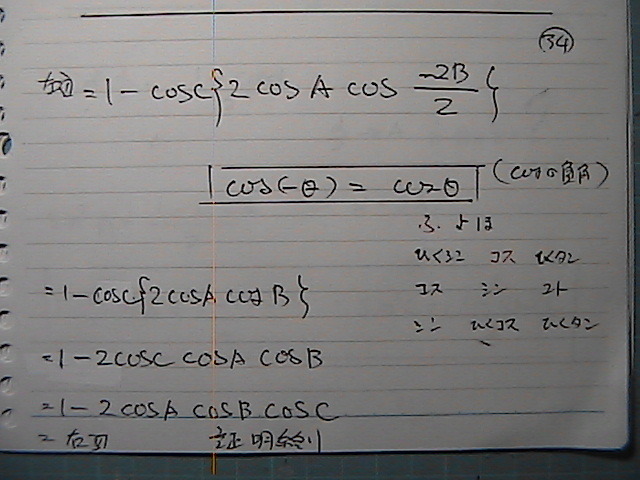 34
左辺 = 1 - cosC{2cosA cos -2B/2}
cos(-θ) = cosθ (cosの負角)
ふ.よほ
ひくシン コス ひくタン
コス シン コト
シン ひくコス ひくタン
= 1 - cosC{2cosA cosB}
= 1 - 2cosC cosA cosB
= 1 - 2cosA cosB cosC
= 右辺 証明終り